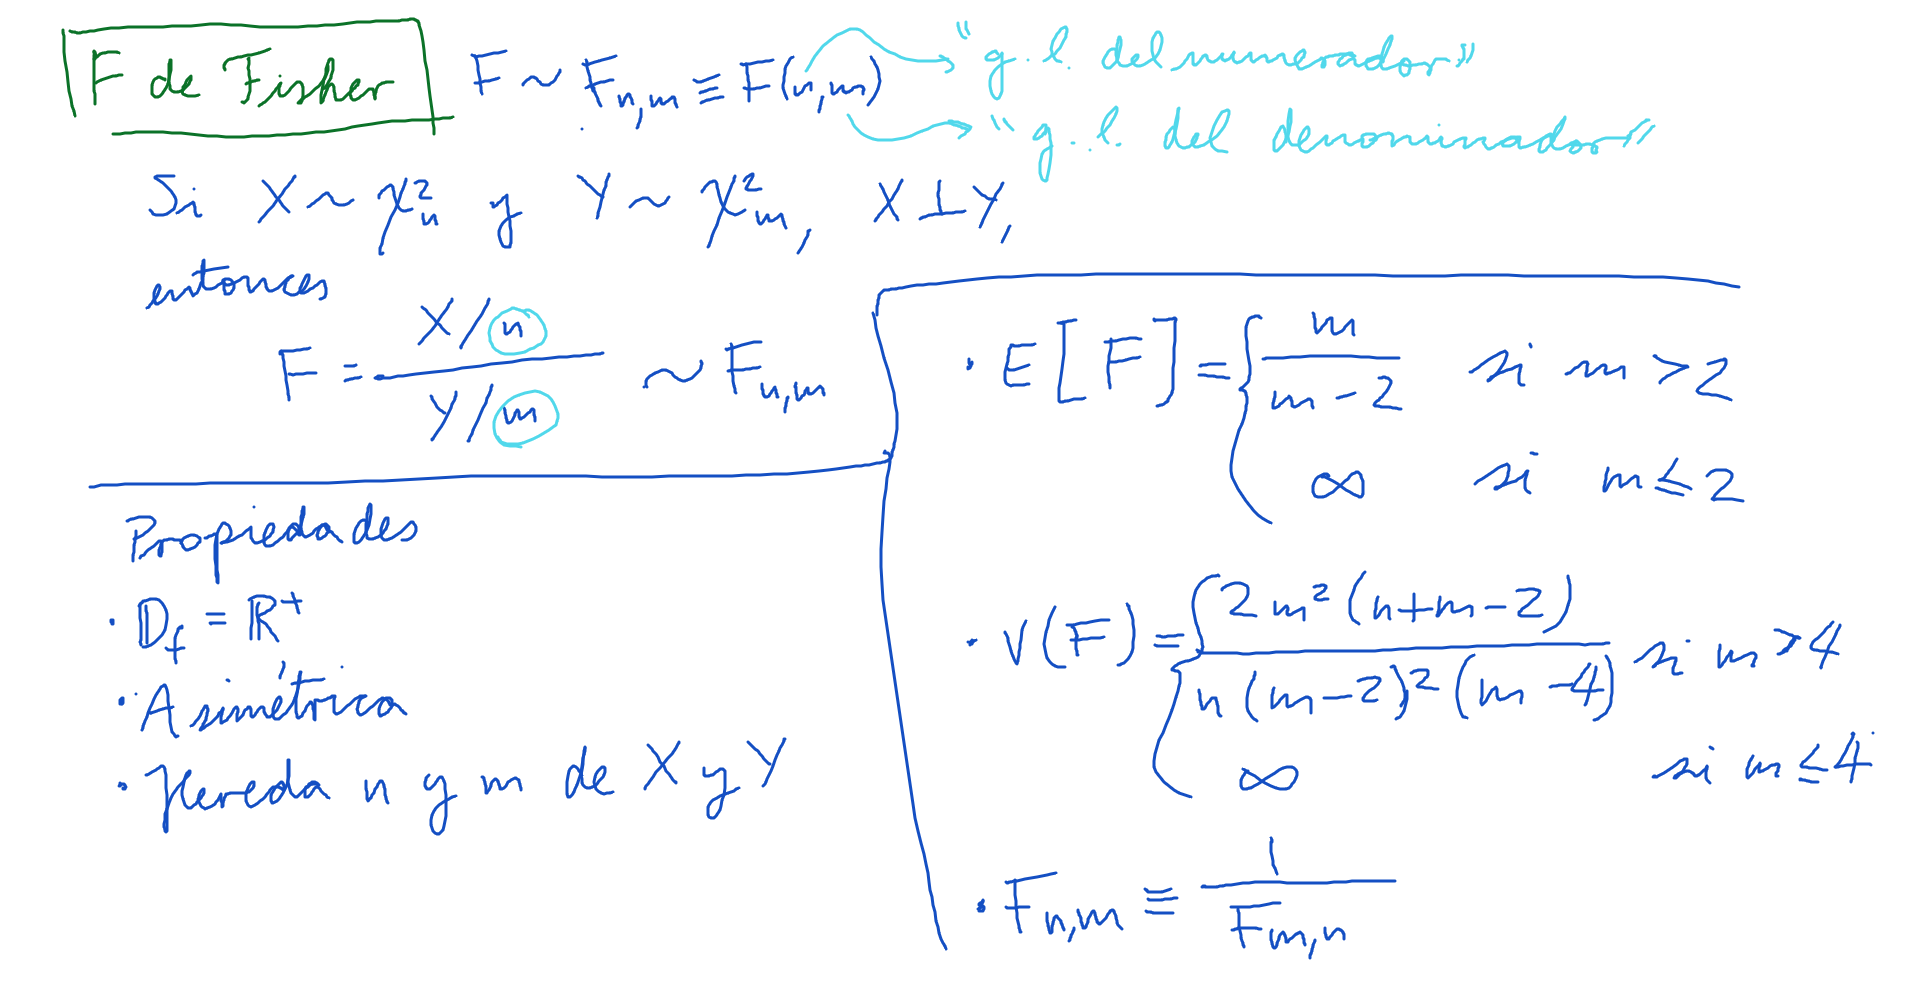 F de Fisher
F ~ F_{n,m} ≡ F(n,m)
"g.l. del numerador"
"g.l. del denominador"
Si X ~ χ²_n y Y ~ χ²_m, X ⊥ Y,
entonces
F = (X/n)/(Y/m) ~ F_{n,m}
Propiedades
· D_f = ℝ⁺
· Asimétrica
· Hereda n y m de X y Y
· E[F] = { m/(m-2) si m > 2
∞ si m ≤ 2
· V(F) = { 2m²(n+m-2)/(n(m-2)²(m-4)) si m > 4
∞ si m ≤ 4
· F_{n,m} ≡ 1/F_{m,n}